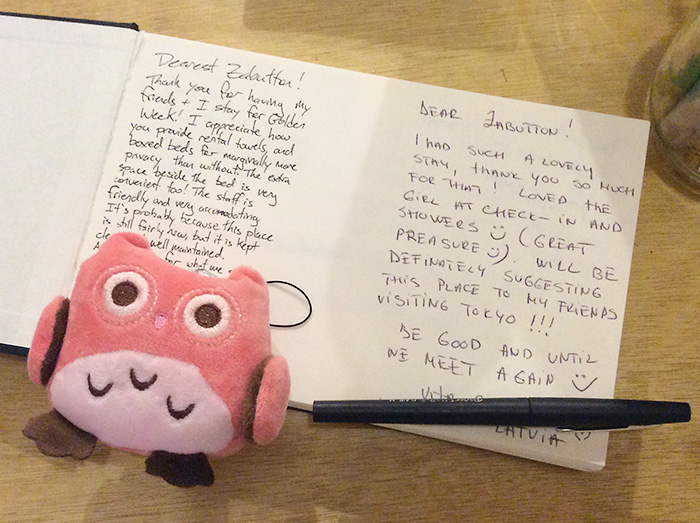 Dearest Zabutton!
Thank you for having my
friends + I stay for Golden
Week! I appreciate how
you provide rental towels, and
boxed beds for marginally more
privacy than without. The extra
space beside the bed is very
convenient too! The staff is
friendly and very accomodating.
It's probably because this place
is still fairly new, but it is kept
well maintained.
for what we
DEAR ZABUTTON!
I HAD SUCH A LOVELY
STAY, THANK YOU SO MUCH
FOR THAT! LOVED THE
GIRL AT CHECK-IN AND
SHOWERS ☺ (GREAT
PREASURE ☺). WILL BE
DEFINATELY SUGGESTING
THIS PLACE TO MY FRIENDS
VISITING TOKYO !!!
BE GOOD AND UNTIL
WE MEET AGAIN ☺
LATVIA ☺